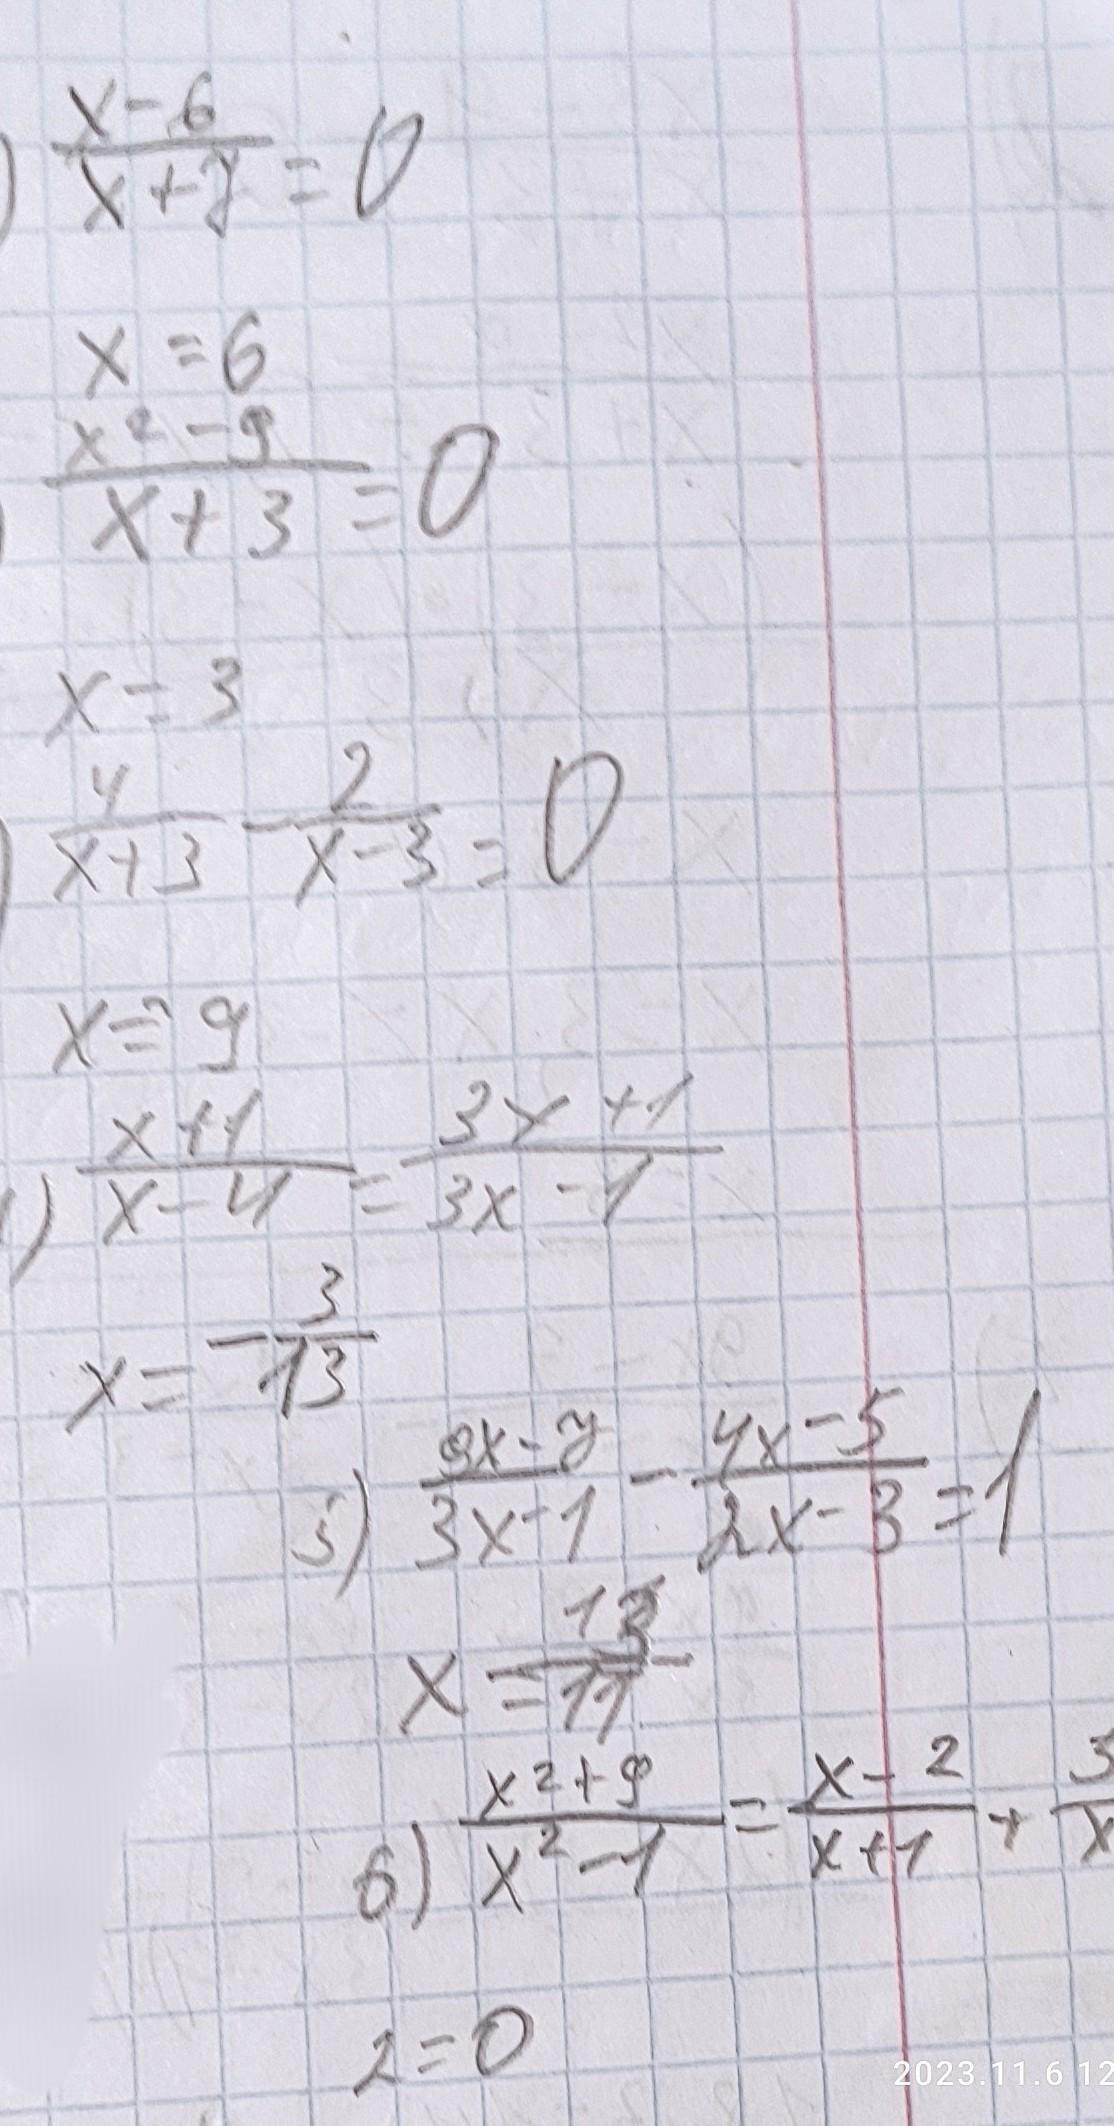 ) (x-6)/(x+7) = 0
x = 6
) (x²-9)/(x+3) = 0
x = 3
) 4/(x+3) - 2/(x-3) = 0
x = 9
) (x+1)/(x-4) = (3x+1)/(3x-1)
x = -3/13
5) (9x-7)/(3x-1) - (4x-5)/(2x-3) = 1
x = 13/11
6) (x²+9)/(x²-1) = (x-2)/(x+1) +
2=0
2023.11.6 12